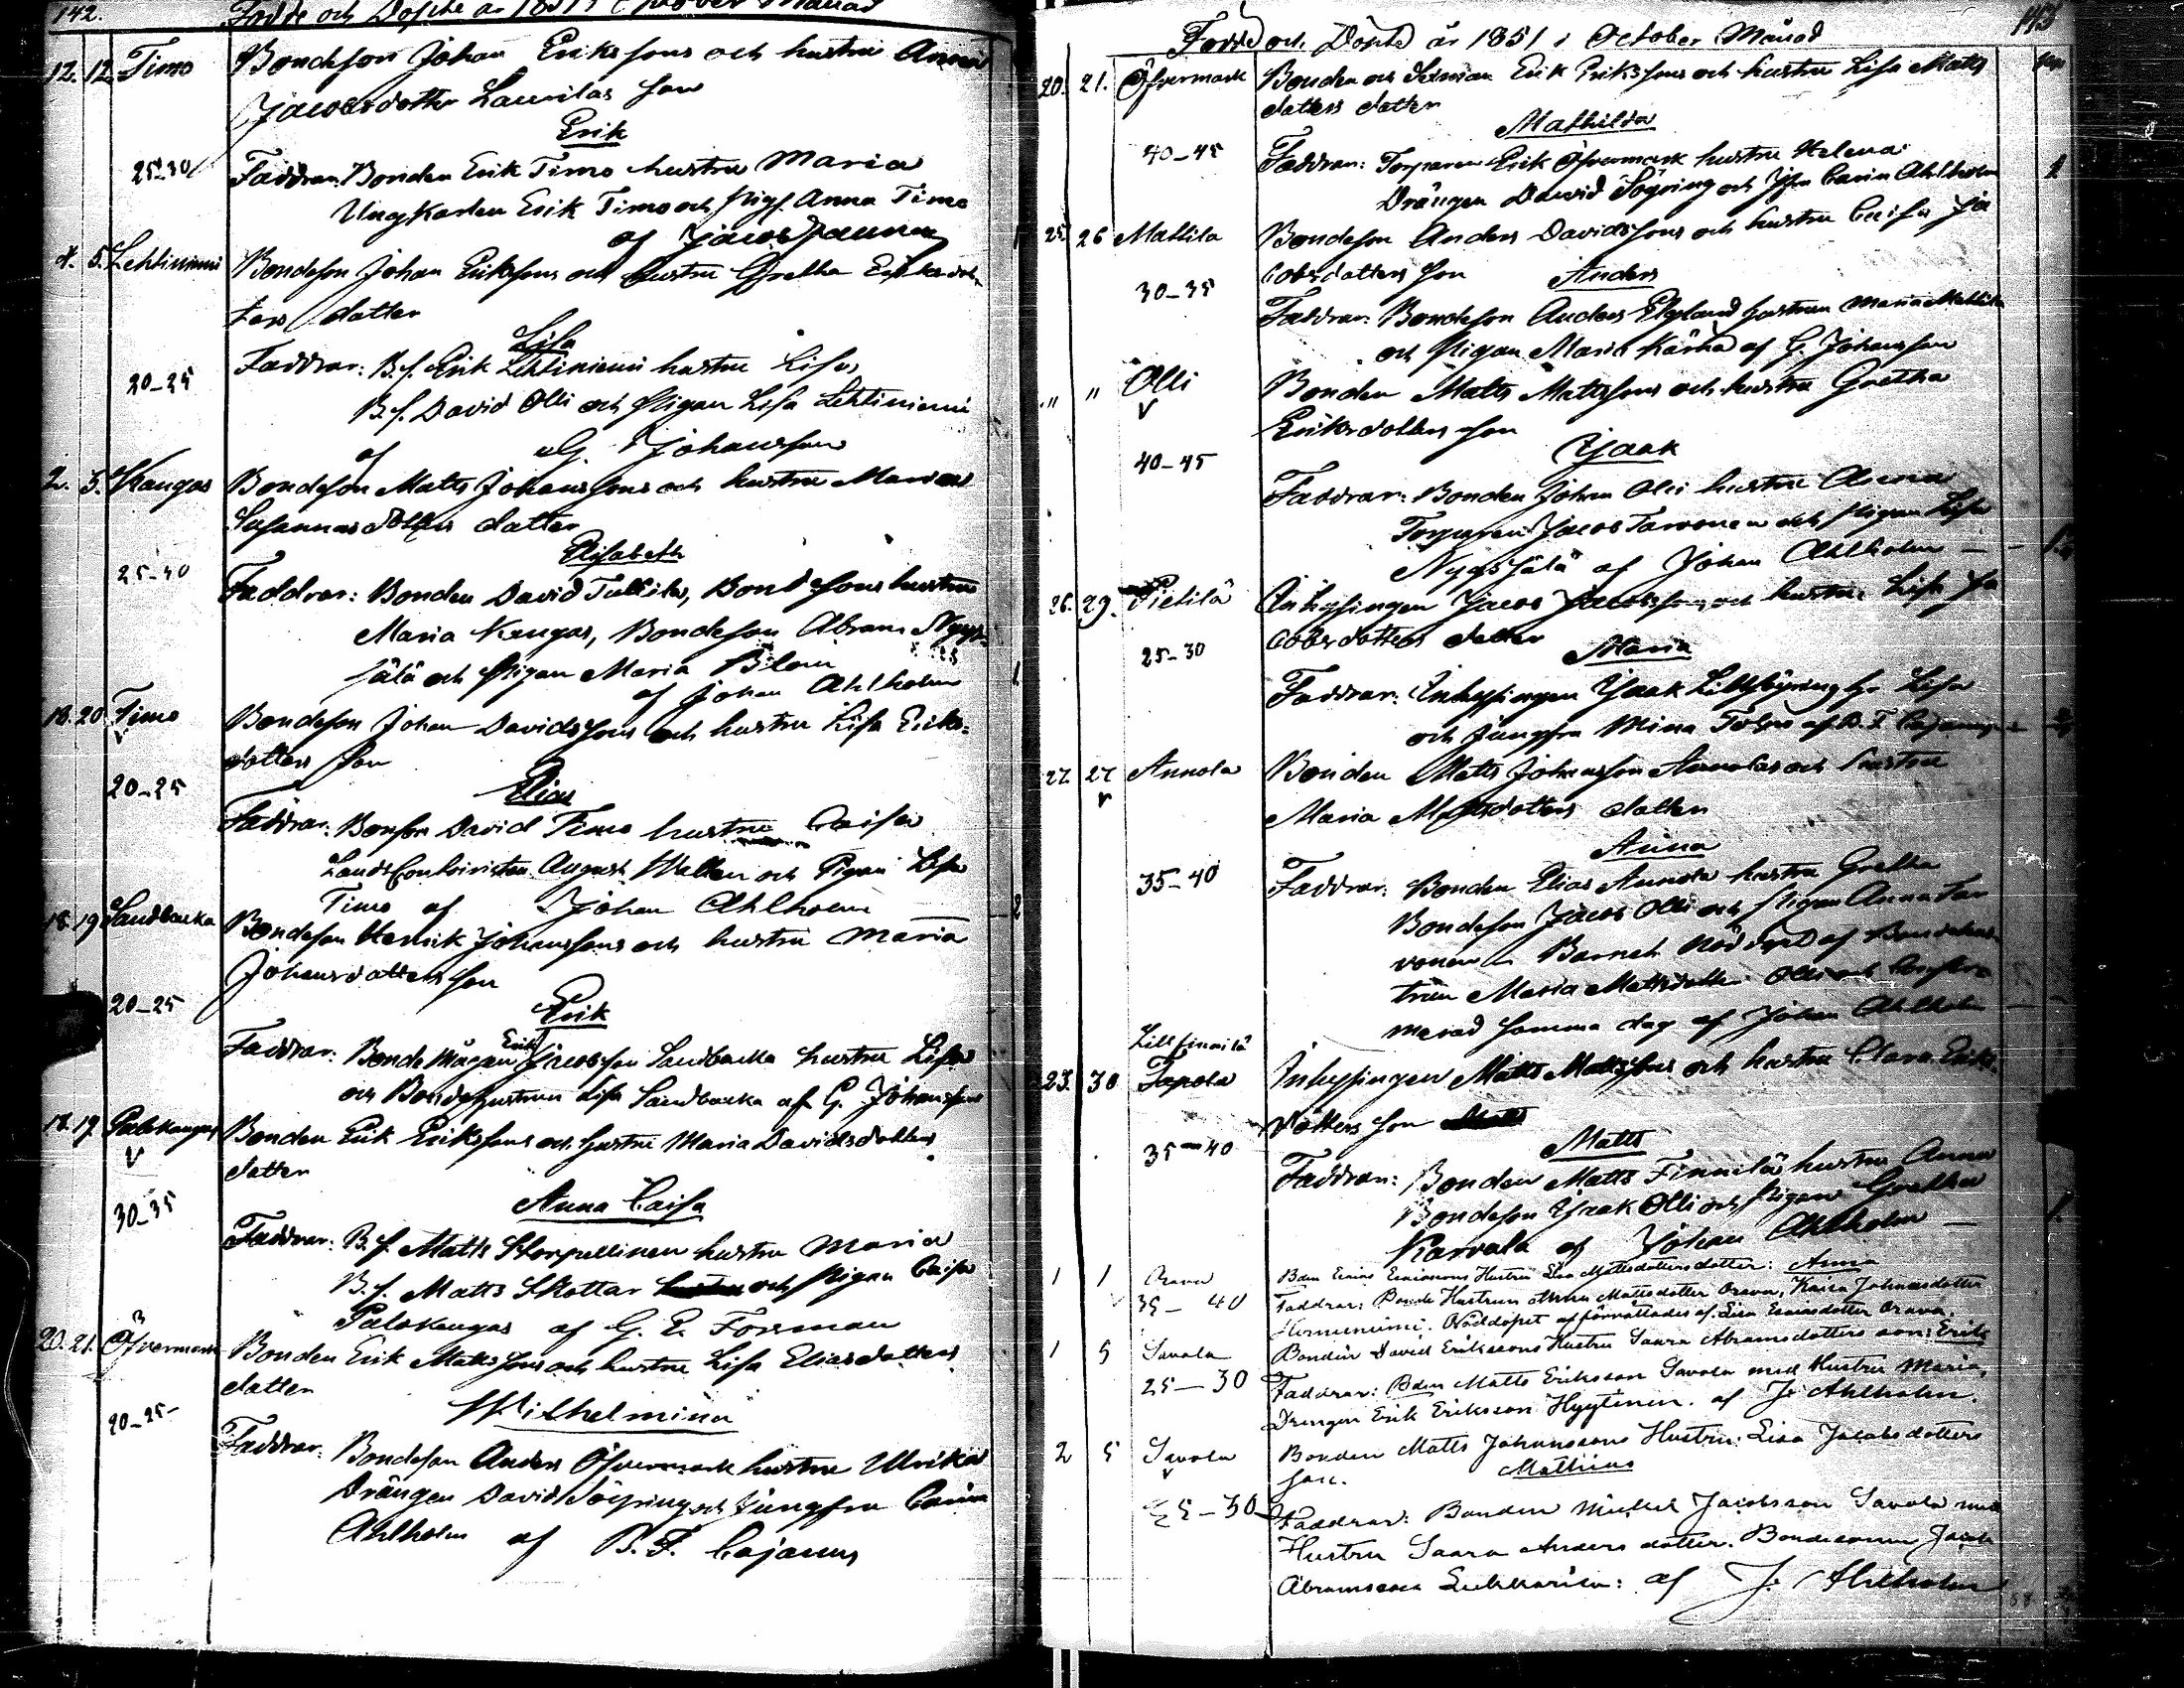 142.
Födde och Döpte år 1851 i October Månad
12. 12. Timo Bondeson Johan Erikssons och hustru Anna
Jacobsdotter Laurilas son
Erik
25-30 Faddrar: Bonden Erik Timo hustru Maria
Ungkarlen Erik Timo och pig. Anna Timo
af Jacob
4. 5. Lehtiniemi Bondeson Johan Erikssons och hustru Gretha Eriksdot
ters dotter
Lisa
Faddrar: B.s. Erik Lehtiniemi hustru Lisa
20-25
B.s. David Olli och pigan Lisa Lehtiniemi
af G. Johansson
2. 5. Kangas Bondeson Matts Johanssons och hustru Maria
Susannasdotters dotter
Elisabeth
25-40
Faddrar: Bonden David Tullila, Bondesons hustru
Maria Kangas, Bondeson Abram Nygs-
jälä och Pigan Maria Blom
af Johan Ahlholm 1.
18. 20. Timo Bondeson Johan Davidssons och hustru Lisa Eriks-
dotters son
20-25
Elias
Faddrar: Bonson David Timo hustru Caisa
August och Pigan Lisa
Timo af Johan Ahlholm 2
18. 19 Sandbacka Bondeson Henrik Johanssons och hustru Maria
Johansdotters son
20-25 Erik
Faddrar: Bonde Mågen Erik Jacobsson Sandbacka hustru Lisa
och Bondehustrun Lisa Sandbacka af G. Johansson
18. 19 Palokangas Bonden Erik Erikssons och hustru Maria Davidsdotters
dotter
Anna Caisa
30-35
Faddrar: B.s. Matts Storpellinen hustru Maria
B.s. Matts Skottar och pigan Caisa
Palokangas af G. E. Forsman
20. 21. Öfvermark Bonden Erik Mattssons och hustru Lisa Eliasdotters
dotter
Wilhelmina
20-25-
Faddrar: Bondeson Anders Öfvermark hustru Ulrika
Drängen David Sögring och Jungfru Carin
Ahlholm af B. F. Cajanus
143
Födde och Döpte år 1851 i October Månad
20. 21. Öfvermark Bonden och Erik Erikssons och hustru Lisa Matts
dotters dotter
Mathilda
40-45 Faddrar: Torparen Erik Öfvermark hustru Helena
Drängen David Sögring och Jfr Carin Ahlholm
25. 26 Mattila Bondeson Anders Davidssons och hustru Caisa Ja
cobsdotters son Anders
30-35
Faddrar: Bondeson Anders hustrun Maria Mattila
och Pigan Maria Kärnä af G. Johansson
" " Olli Bonden Matts Mattssons och hustru Gretha
Eriksdotters son
Isaak
40-45
Faddrar: Bonden Johan Olli hustru Anna
Torparen Jacob Tarvonen och pigan Lisa
Nygsjälä af Johan Ahlholm
26. 29. Pietilä Inhysingen Jacob Jacobssons och hustru Lisa Ja
cobsdotters dotter
Maria
25-30
Faddrar: Inhysingen Isaak hu Lisa
och Jungfru Mina af B. F. Cajanus
27. 27 Annola Bonden Matts Johansson Annolas och hustru
Maria Mattsdotters dotter
Anna
35-40 Faddrar: Bonden Elias Annola hustru Gretha
Bondeson Jacob Olli och pigan Anna Tar
vonen. Barnet Nöddöpt af Bondehus
trun Maria Mattsdotter Olli och Confir
merad samma dag af Johan Ahlholm
Lill Finnilä
23. 30 Tapola Inhysingen Matts Mattssons och hustru Clara Eriks-
dotters son
35-40 Matts
Faddrar: Bonden Matts Finnilä hustru Anna
Bondeson Isaak Olli och pigan Gretha
Karvala af Johan Ahlholm
1 1 Orava Bdn Esaias Esaiassons Hustru Lisa Mattsdotters dotter: Anna
35-40 Faddrar: Bonde Hustrun Anna Mattsdotter Orava, Kaisa Johansdotter
Nöddopet af förrättades af Lisa Esaiasdotter Orava.
1 5 Savola Bonden David Erikssons Hustru Saara Abramsdotters son: Erik
25-30 Faddrar: Bdn Matts Eriksson Savola med Hustru Maria,
Drengen Erik Eriksson Hyytinen. af J. Ahlholm.
2 5 Savola Bonden Matts Johanssons Hustru: Lisa Jacobsdotters
son. Mathias
25-30 Faddrar: Bonden Michel Jacobsson Savola med
Hustru Saara Anders dotter. Bondesonen Jacob
Abramsson af J. Ahlholm